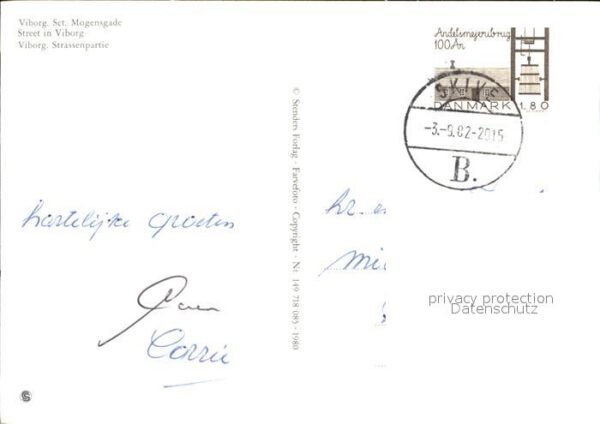 Viborg. Sct. Mogensgade
Street in Viborg
Viborg. Strassenpartie
Andelsmejeribrug
100 År
DANMARK 1.80
-3.-9.82-2015
B.
© Stenders Forlag - Farvefoto - Copyright - Nr. 149 718 085 - 1980
hartelijke groeten
Corrie
hr. en
privacy protection
Datenschutz